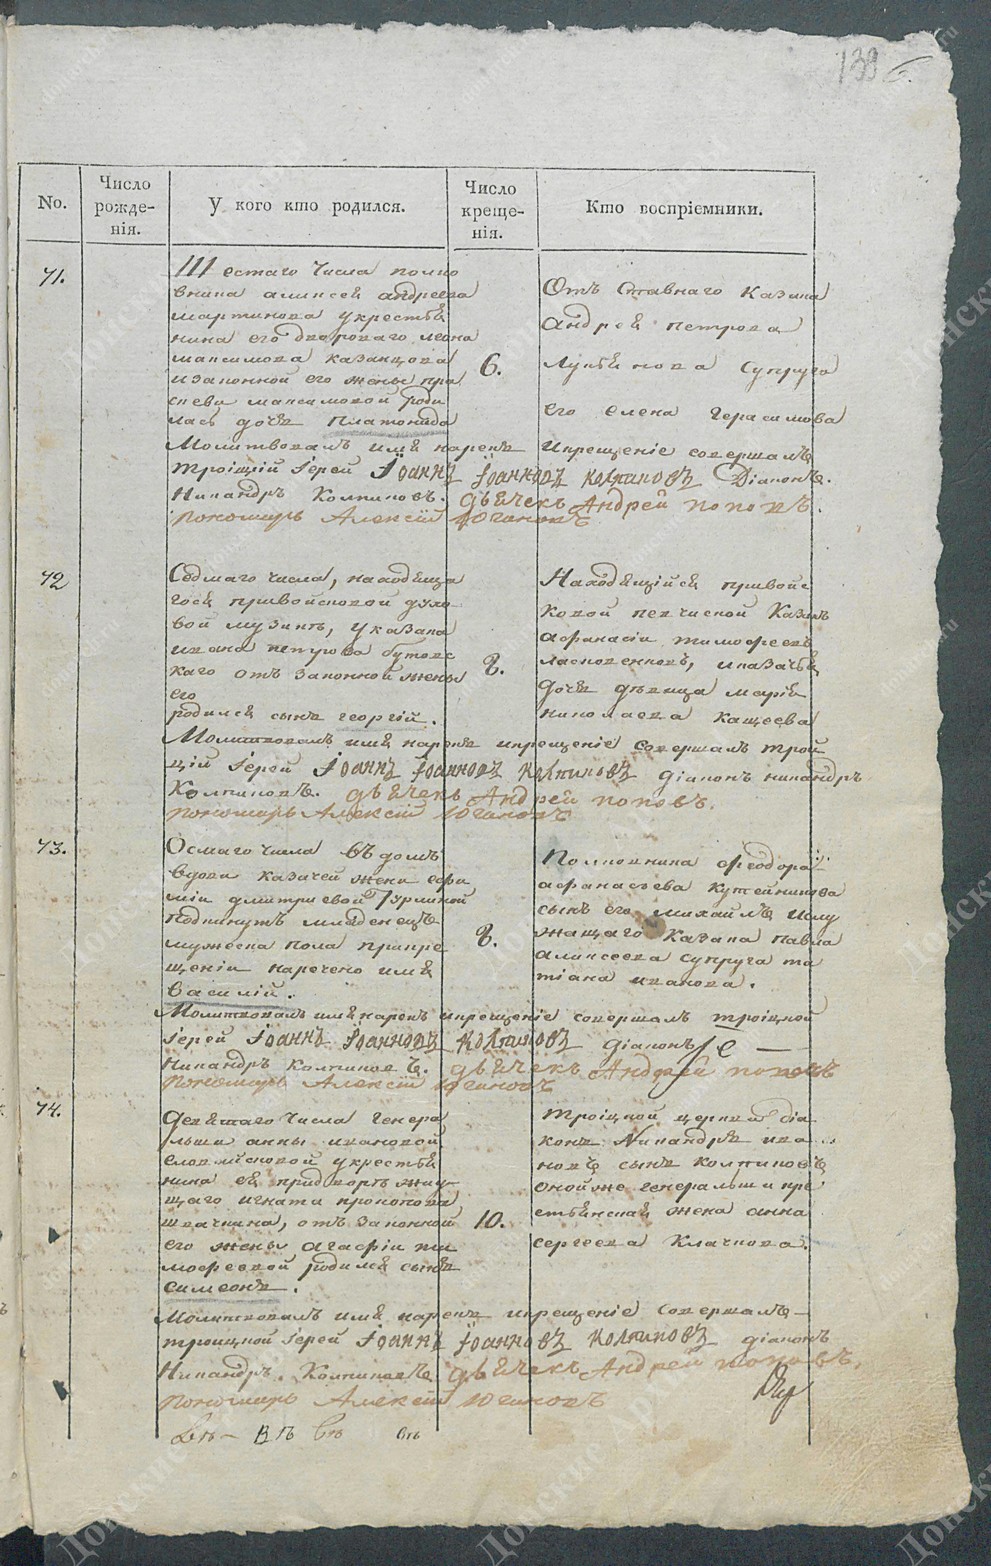 139
No.
Число рожде-нія.
У кого кто родился.
Число креще-нія.
Кто воспріемники.
71.
Шестаго числа полко
вника алексея андреева
мартинова укрестья
нина его двороваго леона
максимова казанцова
изаконной его жены пра
сковьи максимовой роди
лась дочь Платонида
6.
Отъ ставнаго казака
андрея петрова
супруга
его елена герасимова
Молитвовалъ имя нарекъ икрещеніе совершалъ
троіцкій іерей Іоаннъ Іоанновъ колпиковъ Діаконъ
Никандръ Колпиковъ. дьячекъ Андрей поповъ.
пономарь Алексій Югановъ
72
Седмаго числа, находяща
гося привойсковой духо
вой музикъ, у казака
ивана петрова бутовс
каго отъ законной жены
его
родился сынъ георгій.
8.
Находящійся привойс
ковой певческой Казакъ
афанасій тимофеевъ
иказачья
дочь девица марія
николаева кащеева
Молитвовалъ имя нарекъ икрещеніе совершалъ трои
цкій іерей Іоаннъ Іоанновъ колпиковъ діаконъ никандръ
Колпиковъ. дьячекъ Андрей поповъ.
пономарь Алексій Югановъ
73.
Осмаго числа въ домъ
вдови казачей жени евфи
міи дмитриевой
подкинутъ младенецъ
мужеска пола прикре
щеніи наречено имя
василій.
8.
Полковника феодора
афанасьева кутейникова
сынъ его михайлъ ислу
жащаго казака павла
алексеева супруга та
тіана иванова.
Молитвовалъ имя нарекъ икрещеніе совершалъ троіцкой
іерей Іоаннъ Іоанновъ колпиковъ діаконъ
Никандръ Колпиковъ. дьячекъ Андрей поповъ
пономарь Алексій Югановъ
74.
Девятаго числа генера
льши анны ивановой
иловайсковой укрестья
нина ея придворъ живу
щаго игната прокопова
швачкина, отъ законной
его жены агафіи ти
мофеевой родился сынъ
симеонъ.
10.
Троіцкой церкви діа
конъ Никандръ ива
новъ сынъ колпиковъ
оной же генеральши кре
стьянская жена анна
сергеева Клачкова.
Молитвовалъ имя нарекъ икрещеніе совершалъ
троицкой іерей Іоаннъ Іоанновъ колпиковъ діаконъ
Никандръ. Колпиковъ дьячекъ Андрей поповъ.
пономарь Алексій Югановъ
Въ Въ Въ Въ